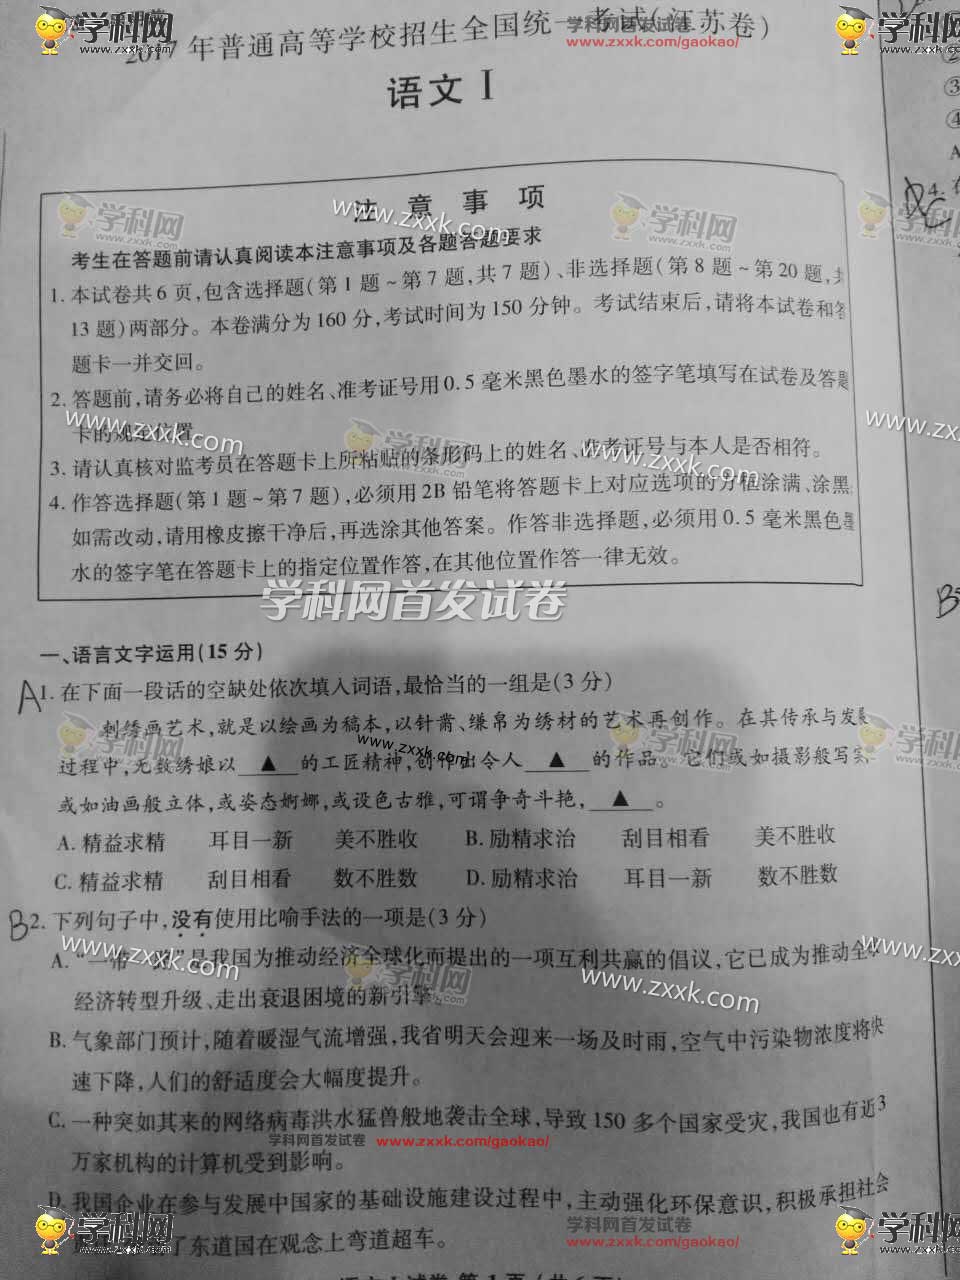 2017年普通高等学校招生全国统一考试(江苏卷)
语文 I
注 意 事 项
考生在答题前请认真阅读本注意事项及各题答题要求
1. 本试卷共6页,包含选择题(第1题~第7题,共7题)、非选择题(第8题~第20题,共
13题)两部分。本卷满分为160分,考试时间为150分钟。考试结束后,请将本试卷和答
题卡一并交回。
2. 答题前,请务必将自己的姓名、准考证号用0.5毫米黑色墨水的签字笔填写在试卷及答题
卡的规定位置
3. 请认真核对监考员在答题卡上所粘贴的条形码上的姓名、准考证号与本人是否相符。
4. 作答选择题(第1题~第7题),必须用2B铅笔将答题卡上对应选项的方框涂满、涂黑
如需改动,请用橡皮擦干净后,再选涂其他答案。作答非选择题,必须用0.5毫米黑色墨
水的签字笔在答题卡上的指定位置作答,在其他位置作答一律无效。
学科网首发试卷
一、语言文字运用(15分)
A1. 在下面一段话的空缺处依次填入词语,最恰当的一组是(3分)
刺绣画艺术,就是以绘画为稿本,以针黹、缣帛为绣材的艺术再创作。在其传承与发展
过程中,无数绣娘以▲的工匠精神,创作出令人▲的作品。它们或如摄影般写实
或如油画般立体,或姿态婀娜,或设色古雅,可谓争奇斗艳,▲。
A. 精益求精 耳目一新 美不胜收 B. 励精求治 刮目相看 美不胜收
C. 精益求精 刮目相看 数不胜数 D. 励精求治 耳目一新 数不胜数
B2. 下列句子中,没有使用比喻手法的一项是(3分)
A. “一带一路”是我国为推动经济全球化而提出的一项互利共赢的倡议,它已成为推动全
经济转型升级、走出衰退困境的新引擎。
B. 气象部门预计,随着暖湿气流增强,我省明天会迎来一场及时雨,空气中污染物浓度将快
速下降,人们的舒适度会大幅度提升。
C. 一种突如其来的网络病毒洪水猛兽般地袭击全球,导致150多个国家受灾,我国也有近3
万家机构的计算机受到影响。
学科网首发试卷 www.zxxk.com/gaokao/
D. 我国企业在参与发展中国家的基础设施建设过程中,主动强化环保意识,积极承担社会
了东道国在观念上弯道超车。
学科网首发试卷
www.zxxk.com/gaokao/
语文 I 试卷 第1页(共6页)
学科网
zxxk.com
www.zxxk.com